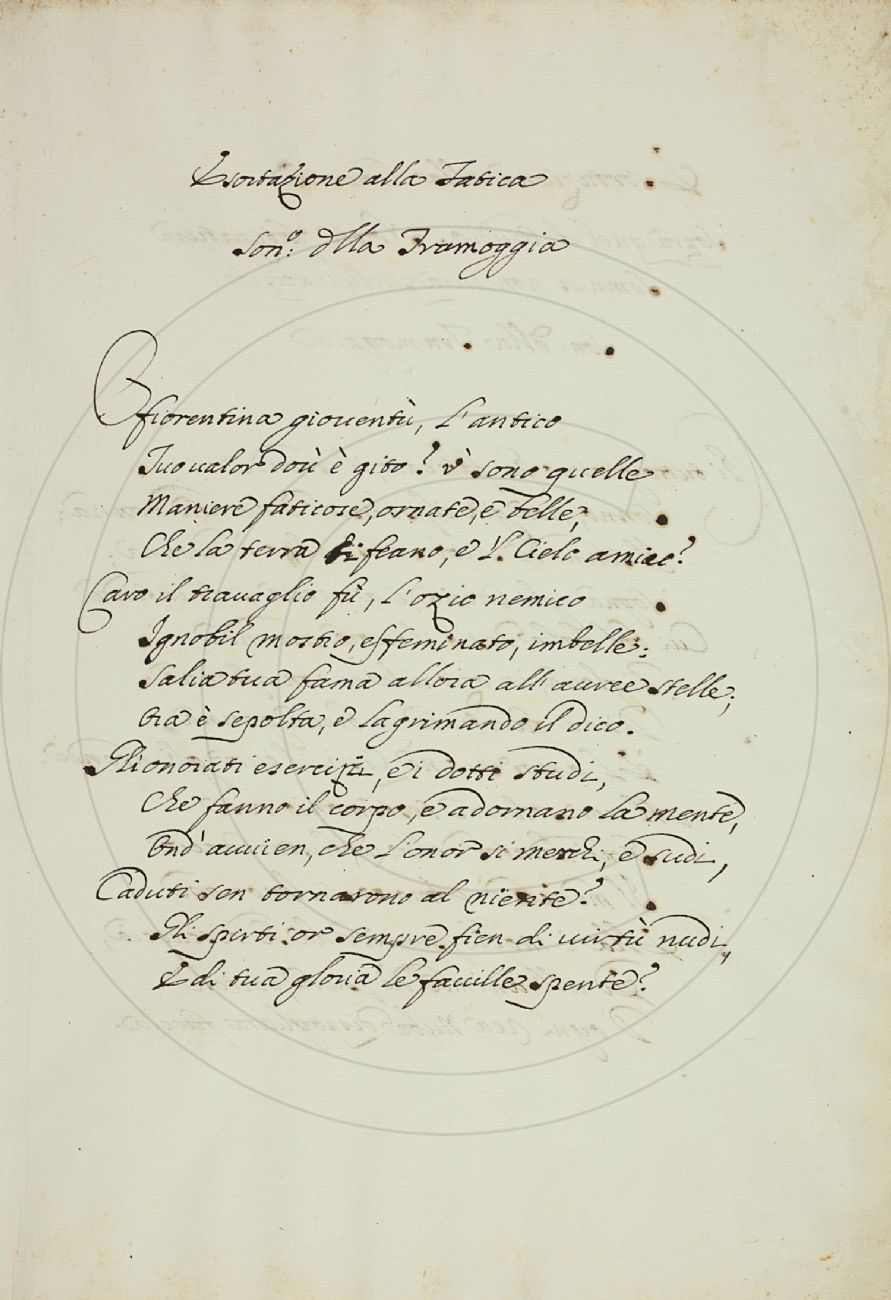 Esortazione alla Fatica
Son.º dlla Tramoggia
O fiorentina gioventù, l'antico
Tuo valor dov' è gito? v' sono quelle
Maniere faticose, ornate, e belle,
Che la terra ti feano, e 'l Cielo amico?
Caro il travaglio fù, l'ozio nemico
Ignobil mostro, effeminato, imbelle:
Salia tua fama allora all' auree stelle;
Ora è sepolta, e lagrimando il dico.
Gli onorati esercizi, e i dotti studi,
Che fanno il corpo, e adornano la mente,
Ond' avvien, che l'onor si merchi, e sudi,
Caduti son tornarono al niente?
Gli spirti or sempre fien di virtù nudi,
E di tua gloria le faville spente?